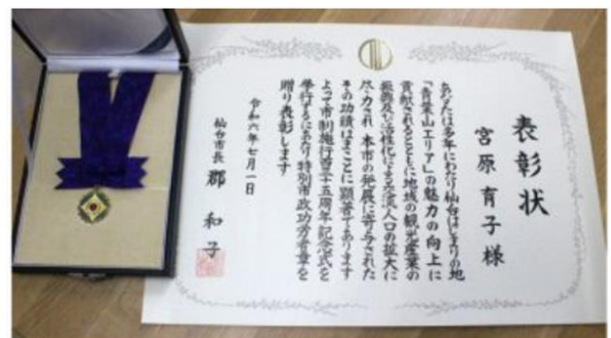 表彰状
宮原育子様
あなたは多年にわたり仙台はじまりの地
「青葉山エリア」の魅力の向上に
貢献されるとともに地域の観光産業の
振興及び活性化による交流人口の拡大に
尽力され本市の発展に寄与された
その功績はまことに顕著であります
よって市制施行百三十五周年記念式を
挙行するにあたり特別市政功労者章を
贈り表彰します
令和六年七月一日
仙台市長 郡和子